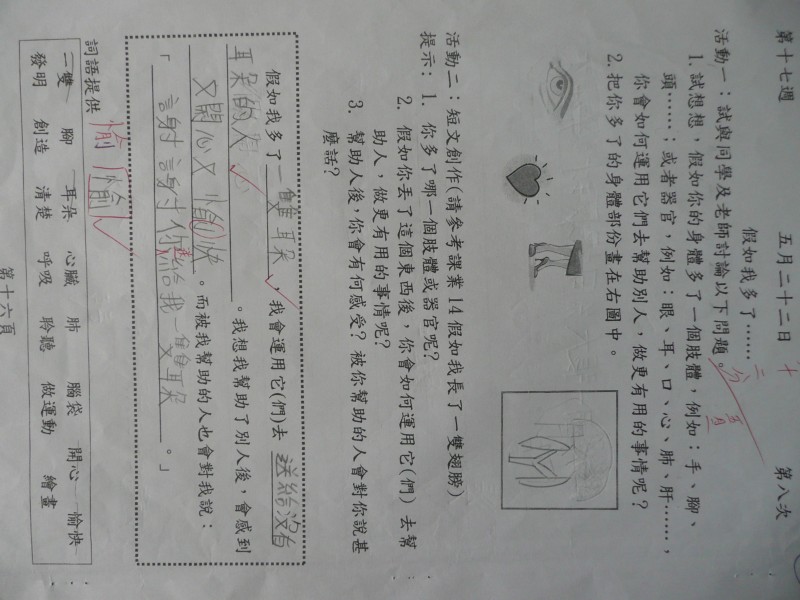 第十七週 五月二十二日 第八次
假如我多了……
活動一：試與同學及老師討論以下問題。
1. 試想想，假如你的身體多了一個肢體，例如：手、腳、
頭……；或者器官，例如：眼、耳、口、心、肺、肝……，
你會如何運用它們去幫助別人，做更有用的事情呢？
2. 把你多了的身體部份畫在右圖中。
活動二：短文創作(請參考課業 14 假如我長了一雙翅膀)
提示： 1. 你多了哪一個肢體或器官呢？
2. 假如你丟了這個東西後，你會如何運用它(們) 去幫
助人，做更有用的事情呢？
3. 幫助人後，你會有何感受？被你幫助的人會對你說甚
麼話？
假如我多了一雙耳朵，我會運用它(們)去 送給沒有
耳朵的人。我想我幫助了別人後，會感到
又開心又愉快。而被我幫助的人也會對我說：
「謝謝你給我一雙耳朵。」
愉 愉
詞語提供
一雙 腳 耳朵 心臟 肺 腦袋 開心 愉快
發明 創造 清楚 呼吸 聆聽 做運動 繪畫
第十六頁